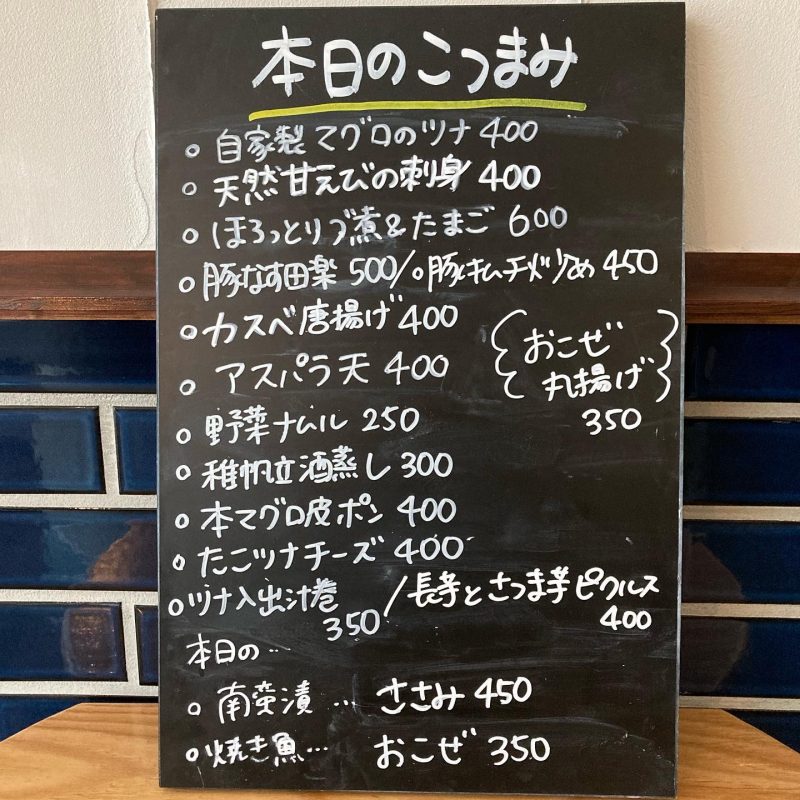 本日のこつまみ
○ 自家製マグロのツナ 400
○ 天然甘えびの刺身 400
○ ほろっとリブ煮&たまご 600
○ 豚なす田楽 500/○豚キムチ炒め 450
○ カスベ唐揚げ 400
○ アスパラ天 400
おこぜ
丸揚げ
350
○ 野菜ナムル 250
○ 稚帆立酒蒸し 300
○ 本マグロ皮ポン 400
○ たこツナチーズ 400
○ ツナ入出汁巻 350
/長芋とさつま芋ピクルス
400
本日の…
○ 南蛮漬 … ささみ 450
○ 焼き魚… おこぜ 350